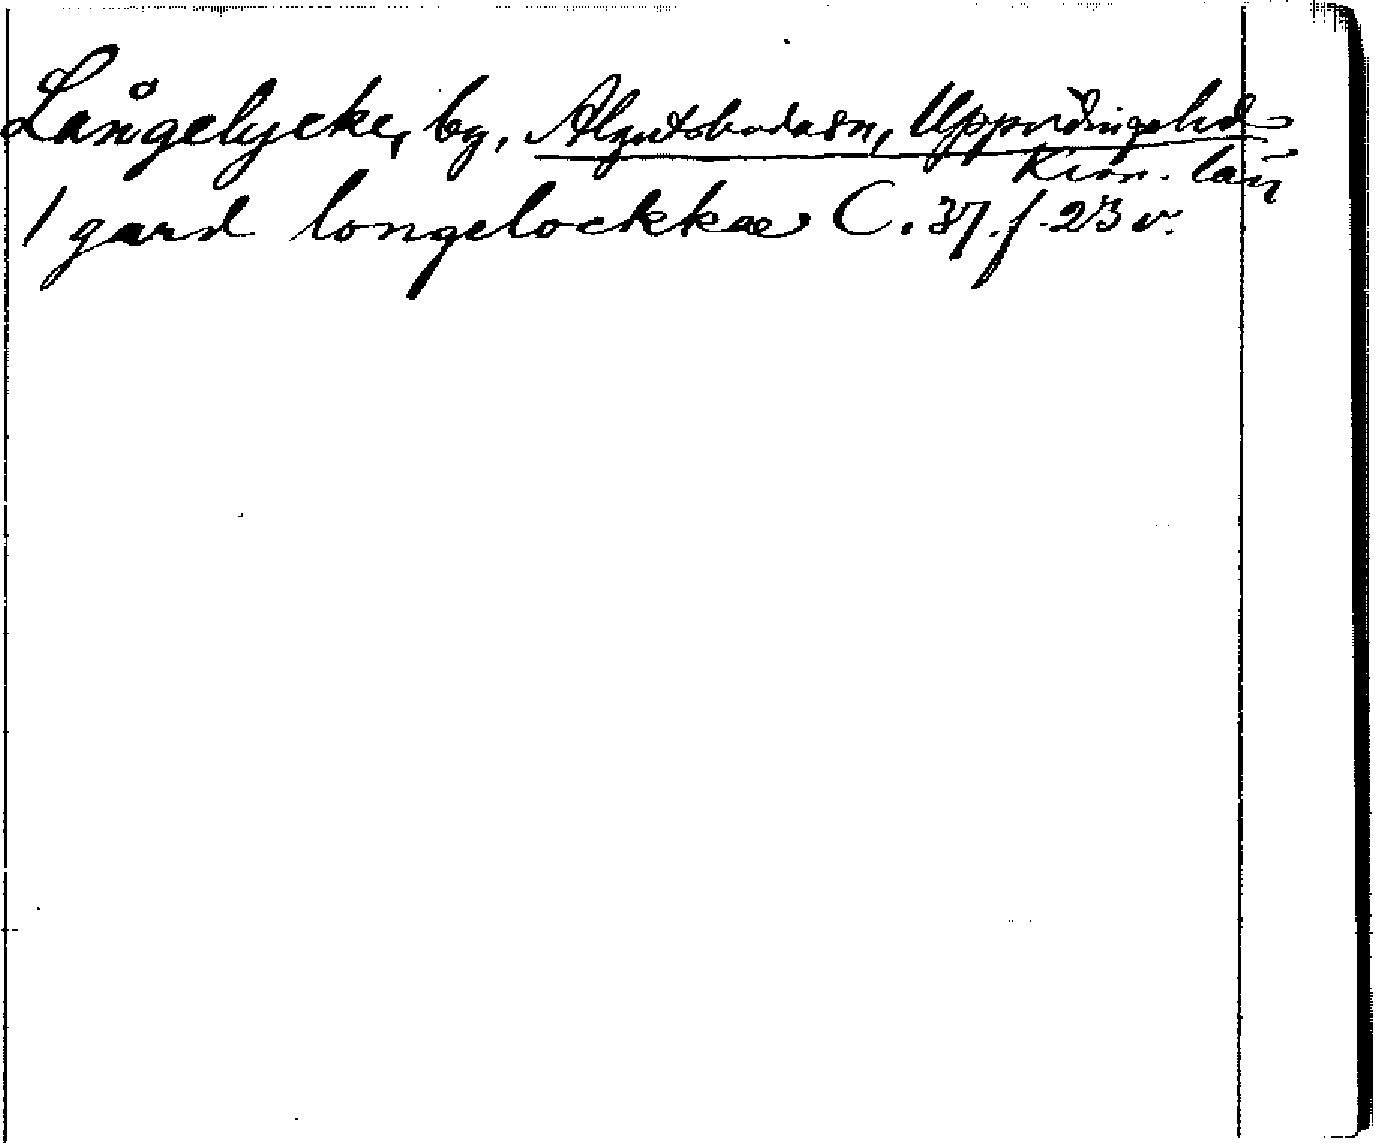 Långelycke, by, Algutsboda sn, Uppvidinge hd
Kron. län
1 gard longelockkæ C. 37. f. 23 v.